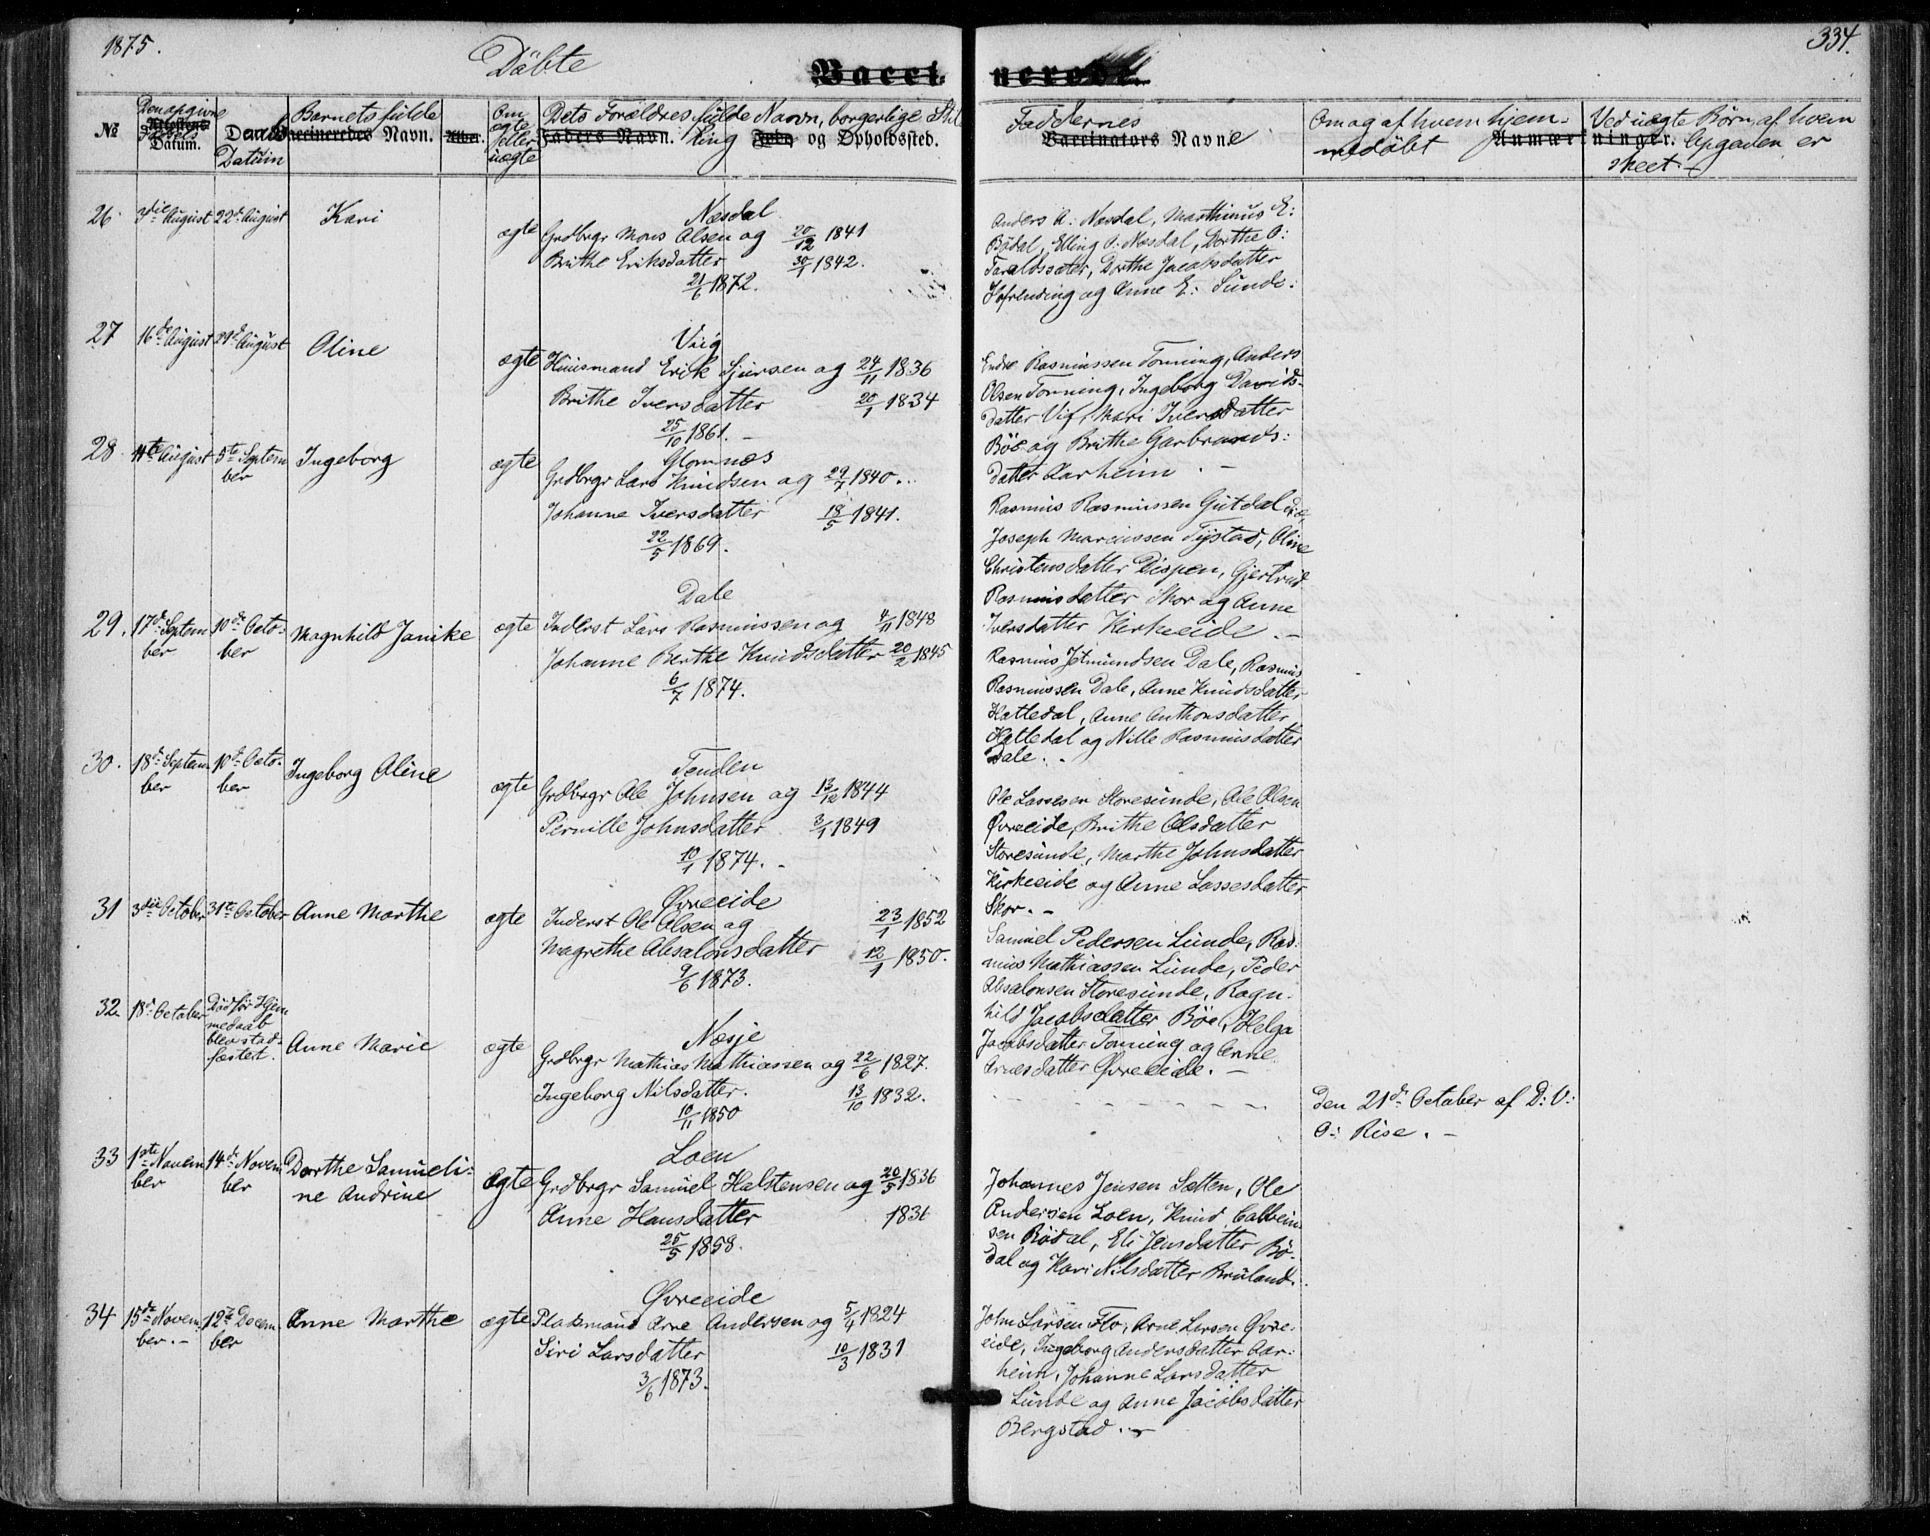 1875.
Döbte
Vacci-
nerede.
334.
№
Den opgivne
Födsels
Datum.
Daabs
Datum
Barnets fulde
Vaccineredes Navn.
Alder.
Om
ægte
eller
uægte
Dets Forældres fulde Navn, borgerlige Stil
Faders Navn. ling Fader og Opholdssted.
Faddernes
Vaccinators Navne
Om og af hvem hjem-
medöbt
Anmær-
ninger.
Ved uægte Börn, af hvem
Opgaven er
skeet.
26. 3die August 22de August Kari
Næsdal
ægte Grdbrgr Mons Olsen og 20/12 1841
Brithe Eriksdatter 30/1 1842.
21/6 1872.
Anders A: Næsdal, Marthinus E:
Bödal, Elling O: Næsdal, Dorthe O:
Taraldssæter, Dorthe Jacobsdatter
Hofrending og Anne E: Sunde:
27 16de August 29de August Oline
Viig
ægte Huusmand Erik Sjursen og 24/11 1836
Brithe Iversdatter 20/1 1834
25/10 1861.
Endre Rasmussen Tonning, Anders
Olsen Tonning, Ingeborg Davids-
datter Vig, Mari Iversdatter
Böe og Brithe Garbrands:
datter Aarheim.
28. 11te August 5te Septem
ber Ingeborg
Glomnæs
ægte Grdbrgr Lars Knudsen og 29/7 1840.
Johanne Iversdatter 18/5 1841.
22/5 1869.
Rasmus Rasmussen Gutdal
Joseph Marcussen Tystad, Oline
Christensdatter Dispen, Gjertrud
Rasmusdatter Skor og Anne
Iversdatter Kirkeeide.
29. 17de Septem
ber 10de Octo-
ber Magnhild Janike
Dale
ægte Inderst Lars Rasmussen og 4/11 1848
Johanne Berthe Knudsdatter 20/2 1845
6/7 1874.
Rasmus Jetmundsen Dale, Rasmus
Rasmussen Dale, Anne Knudsdatter
Hattedal, Anne Anthonsdatter
Hattedal og Nille Rasmusdatter
Dale.
30. 18de Septem
ber 10de Octo-
ber Ingeborg Oline
Tenden
ægte Grdbrgr Ole Johnsen og 13/12 1844
Pernille Johnsdatter 3/1 1849
10/1 1874.
Ole Lassesen Storesunde, Ole Olsen
Øvreeide, Brithe Olsdatter
Storesunde, Marthe Johnsdatter
Kirkeeide og Anne Lassesdatter
Skor.
31 3die October 31te October Anne Marthe
Øvreeide
ægte Inderst Ole Olsen og 23/1 1852
Magrethe Absalonsdatter 12/1 1850.
9/6 1873.
Samuel Pedersen Lunde, Ras-
mus Mathiassen Lunde, Peder
Absalonsen Storesunde, Ragn-
hild Jacobsdatter Böe, Helga
Jacobsdatter Tonning og Anne
Arnesdatter Øvreeide.
32. 18de October Död för Hjem
medaab
blev stad-
fæstet. Anne Marie
Næsje
ægte Grdbrgr Mathias Mathiassen og 22/6 1827.
Ingeborg Nilsdatter. 13/10 1832.
10/11 1850
Den 21de October af D: O:
O: Rise.
33 1ste Novem
ber 14de Novem
ber Dorthe Samueli-
ne Andrine
Loen
ægte Grdbrgr Samuel Halstensen og 20/5 1836
Anne Hansdatter 1836
25/5 1858.
Johannes Jensen Sætten, Ole
Andersen Loen, Knud Colbein
sen Bödal, Eli Jensdatter Bö-
dal og Kari Nilsdatter Bruland.
34 15de Novem
ber. 12te Decem
ber Anne Marthe
Øvreeide
ægte Pladsmand Arne Andersen og 5/4 1824
Siri Larsdatter 10/3 1831
3/6 1873.
John Larsen Flo, Arne Larsen Øvre-
eide, Ingeborg Andersdatter Aar:
heim, Johanne Larsdatter
Lunde og Anne Jacobsdatter
Bergstad.